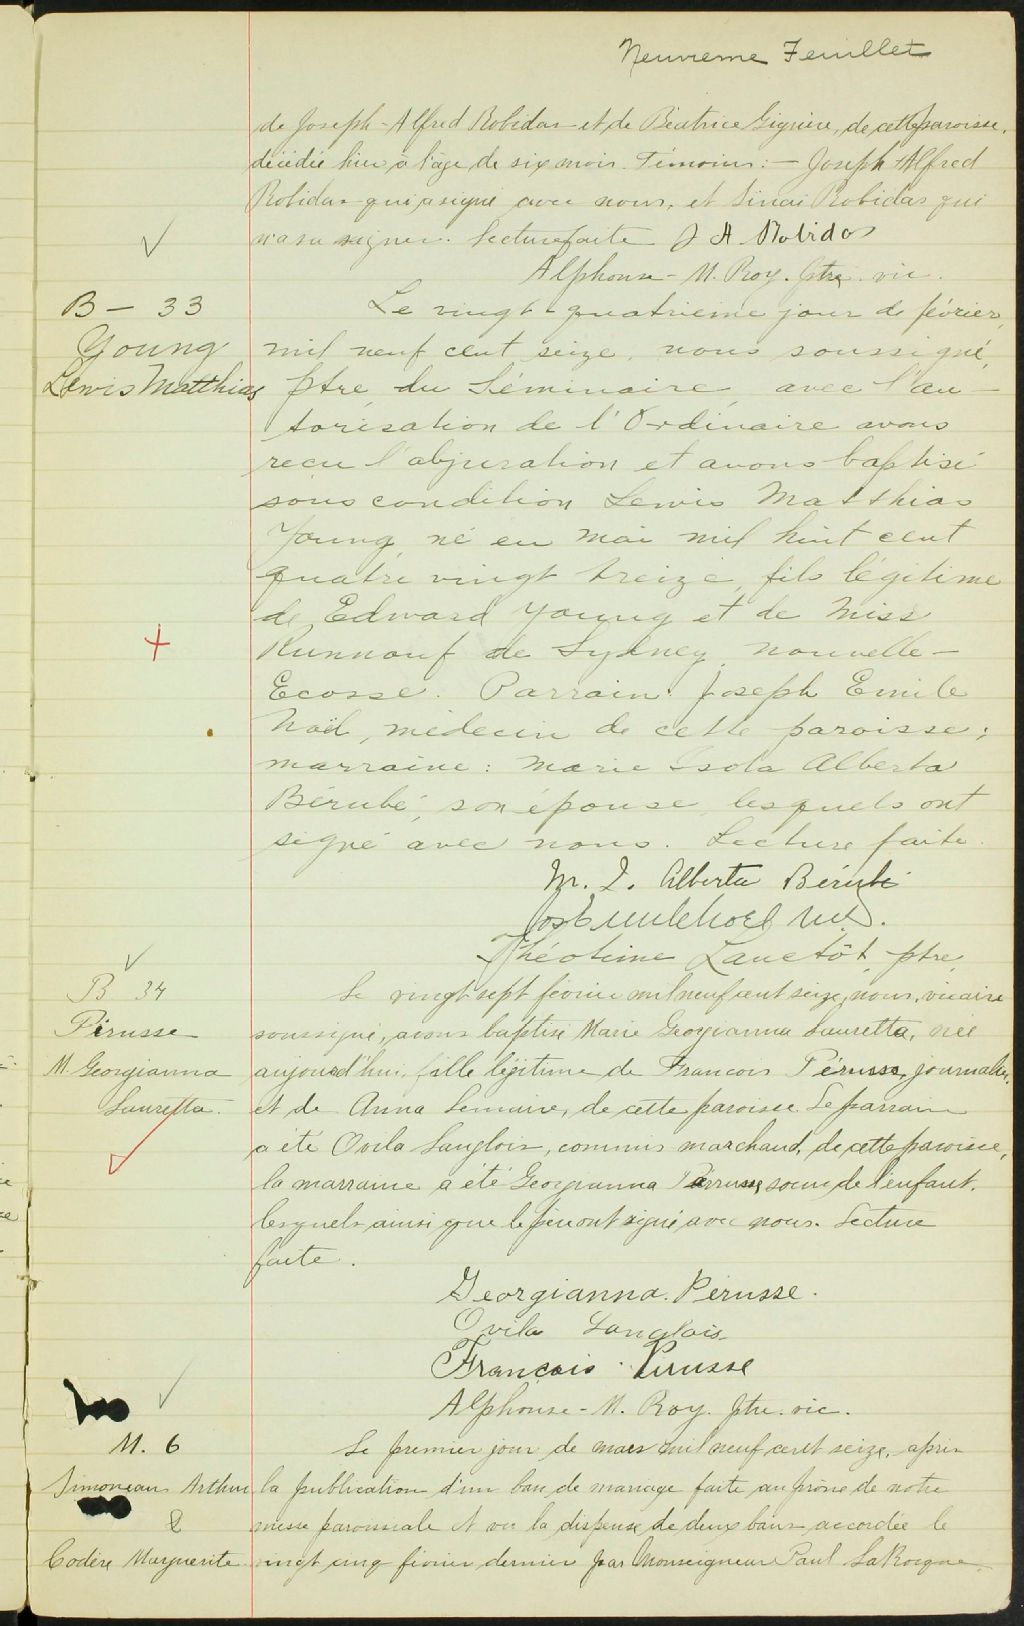 Neuvieme Feuillet
de Joseph-Alfred Robidas et de Béatrice Gignère, de cette paroisse,
décédée hier à l'âge de six mois. Témoins:- Joseph Alfred
Robidas qui a signé avec nous, et Sinai Robidas qui
n'a su signer. Lecture faite J A Robidas
Alphonse-M. Roy. ptre. vic.
B - 33
Young
Lewis Matthias
Le vingt-quatrième jour de février,
mil neuf cent seize, nous soussigné,
ptre du Séminaire, avec l'au-
torisation de l'Ordinaire avons
reçu l'abjuration et avons baptisé
sous condition Lewis Matthias
Young, né en mai mil huit cent
quatre vingt treize, fils légitime
de Edward Young et de Miss
Runnouf de Sydney, Nouvelle-
Ecosse. Parrain: Joseph Emile
Noël, médecin de cette paroisse;
marraine: Marie Isola Alberta
Bérubé, son épouse, lesquels ont
signé avec nous. Lecture faite.
M. I. Alberta Bérubé
Jos Emile Noël M.D.
Théotime Lanctôt, ptre
B 34
Pérusse
M. Georgianna
Lauretta.
Le vingt-sept février mil neuf cent seize, nous, vicaire
soussigné, avons baptisé Marie Georgianna Lauretta, née
aujourd'hui, fille légitime de Francois Pérusse, journalier,
et de Anna Lemaire, de cette paroisse. Le parrain
a été Ovila Langlois, commis marchand, de cette paroisse,
la marraine a été Georgianna Pérusse, soeur de l'enfant,
lesquels ainsi que le père ont signé avec nous. Lecture
faite.
Georgianna. Pérusse.
Ovila Langlois
François Pérusse
Alphonse-M. Roy. ptre. vic.
M. 6
Simoneau Arthur
&
Codère Marguerite
Le premier jour de mars mil neuf cent seize, après
la publication d'un ban de mariage faite au prône de notre
messe paroissiale et vu la dispense de deux bans accordée le
vingt cinq février dernier par Monseigneur Paul LaRocque,